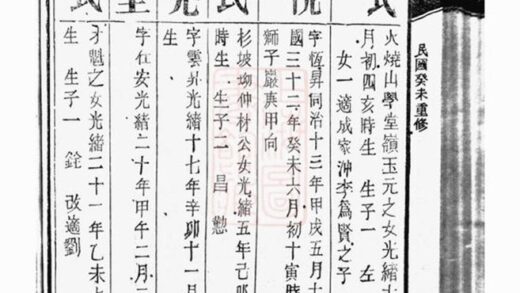 民國癸未重修
氏
火燒山學堂嶺玉元之女光緒
月初四亥時生 生子一 左
女一 適成家沖李為賢之子
字恆昇同治十三年甲戌五月十
國三十二年癸未六月初十寅時
獅子巖 甲向
氏
杉坡坳仲材公女光緒五年己卯
時生 生子二 昌 懃
光
字雲昇光緒十七年辛卯十一月
生
字在安光緒二十年甲午二月二
氏
才魁之女光緒二十一年乙未
生 生子一 銓 改適劉